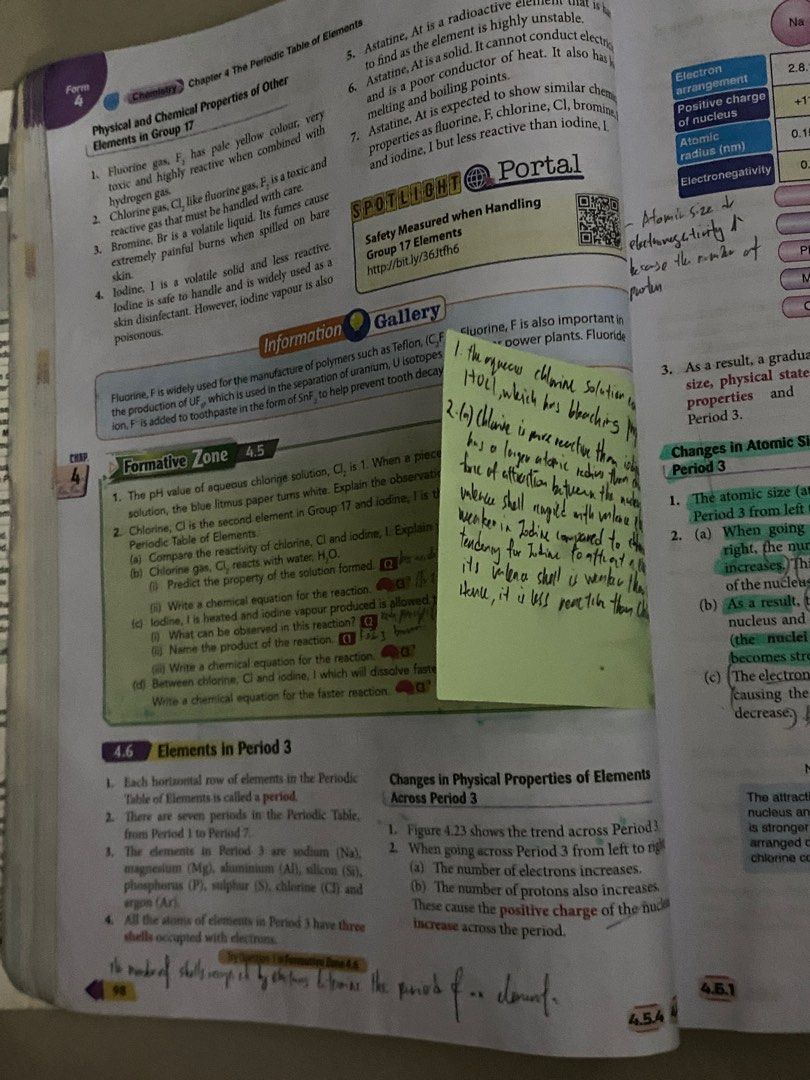 Form
4
Chemistry Chapter 4 The Periodic Table of Elements
Physical and Chemical Properties of Other
Elements in Group 17
1. Fluorine gas, F₂ has pale yellow colour, very
toxic and highly reactive when combined with
hydrogen gas.
2. Chlorine gas, Cl₂ like fluorine gas, F₂ is a toxic and
reactive gas that must be handled with care.
3. Bromine, Br is a volatile liquid. Its fumes cause
extremely painful burns when spilled on bare
skin.
4. Iodine, I is a volatile solid and less reactive.
Iodine is safe to handle and is widely used as a
skin disinfectant. However, iodine vapour is also
poisonous.
5. Astatine, At is a radioactive element that is
to find as the element is highly unstable.
6. Astatine, At is a solid. It cannot conduct
and is a poor conductor of heat. It also has
melting and boiling points.
7. Astatine, At is expected to show similar
properties as fluorine, F, chlorine, Cl, bromine,
and iodine, I but less reactive than iodine, I.
SPOTLIGHT Portal
Safety Measured when Handling
Group 17 Elements
http://bit.ly/36Jtfh6
Information Gallery
Fluorine, F is widely used for the manufacture of polymers such as Teflon, Fluorine, F is also important in
the production of UF₆, which is used in the separation of uranium, U isotopes power plants. Fluoride
ion, F⁻ is added to toothpaste in the form of SnF₂ to help prevent tooth decay
CHAP.
4
Formative Zone 4.5
1. The pH value of aqueous chlorine solution, Cl₂ is 1. When a piece
solution, the blue litmus paper turns white. Explain the
2. Chlorine, Cl is the second element in Group 17 and iodine, I is
Periodic Table of Elements.
(a) Compare the reactivity of chlorine, Cl and iodine, I. Explain
(b) Chlorine gas, Cl₂ reacts with water, H₂O.
(i) Predict the property of the solution formed.
(ii) Write a chemical equation for the reaction.
(c) Iodine, I is heated and iodine vapour produced is allowed
(i) What can be observed in this reaction?
(ii) Name the product of the reaction.
(iii) Write a chemical equation for the reaction.
(d) Between chlorine, Cl and iodine, I which will dissolve
Write a chemical equation for the faster reaction.
1. The aqueous chlorine solution
HOCl, which has bleaching
2. (a) Chlorine is more reactive than
has a larger atomic radius than
force of attraction between the
valence shell
weaker in Iodine compared to
tendency for Iodine to attract
its valence shell is weaker than
Hence, it is less reactive than
4.6 Elements in Period 3
1. Each horizontal row of elements in the Periodic
Table of Elements is called a period.
2. There are seven periods in the Periodic Table,
from Period 1 to Period 7.
3. The elements in Period 3 are sodium (Na),
magnesium (Mg), aluminium (Al), silicon (Si),
phosphorus (P), sulphur (S), chlorine (Cl) and
argon (Ar).
4. All the atoms of elements in Period 3 have three
shells occupied with electrons.
Try Question 1 in Formative Zone 4.6
The number of shells occupied by electrons determine the period of an element.
98
Changes in Physical Properties of Elements
Across Period 3
1. Figure 4.23 shows the trend across Period 3.
2. When going across Period 3 from left to right
(a) The number of electrons increases.
(b) The number of protons also increases.
These cause the positive charge of the
increase across the period.
4.5.4
Na
Electron
arrangement
2.8.
Positive charge
of nucleus
Atomic
radius (nm)
Electronegativity
- Atomic size ↓
electronegativity ↑
because the number of
proton
3. As a result, a
size, physical state
properties and
Period 3.
Changes in Atomic
Period 3
1. The atomic size
Period 3 from left
2. (a) When going
right, the
increases.
of the nucleus
(b) As a result,
nucleus and
(the nuclei
becomes
(c) The
causing the
decrease.)
The
nucleus
is stronger
arranged
chlorine
4.6.1